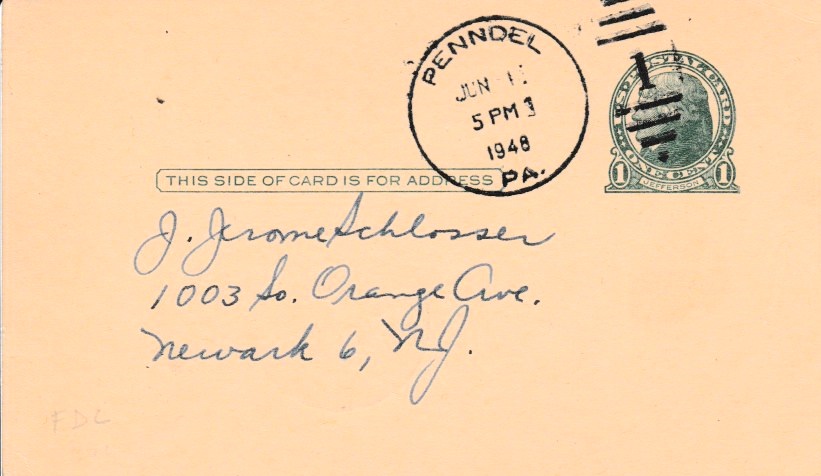 PENNDEL
JUN
5 PM
1948
PA.
1
U.S. POSTAL CARD
ONE CENT
1 JEFFERSON 1
THIS SIDE OF CARD IS FOR ADDRESS
J. Jerome Schlosser
1003 So. Orange Ave.
Newark 6, N.J.
FDC